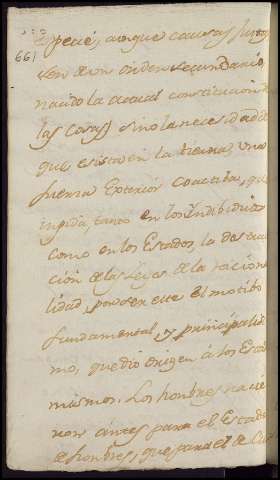 661
pecie, aunque causas fuer
sen de un orden secundario,
nacido la actual constitucion de
las cosas) sino la necesidad de
que exista en la tierra, una
fuerza Exterior Coactiba, que
impida, tanto en los Yndibiduos
como en los Estados, la destruc
ción de las leyes de la racion
lidad, pues en este el motibo
fundamental, y principalisi
mo, que dio origen á los Estad
mismos. Los hombres nacie
ron antes para el Estado
de hombres, que para el de